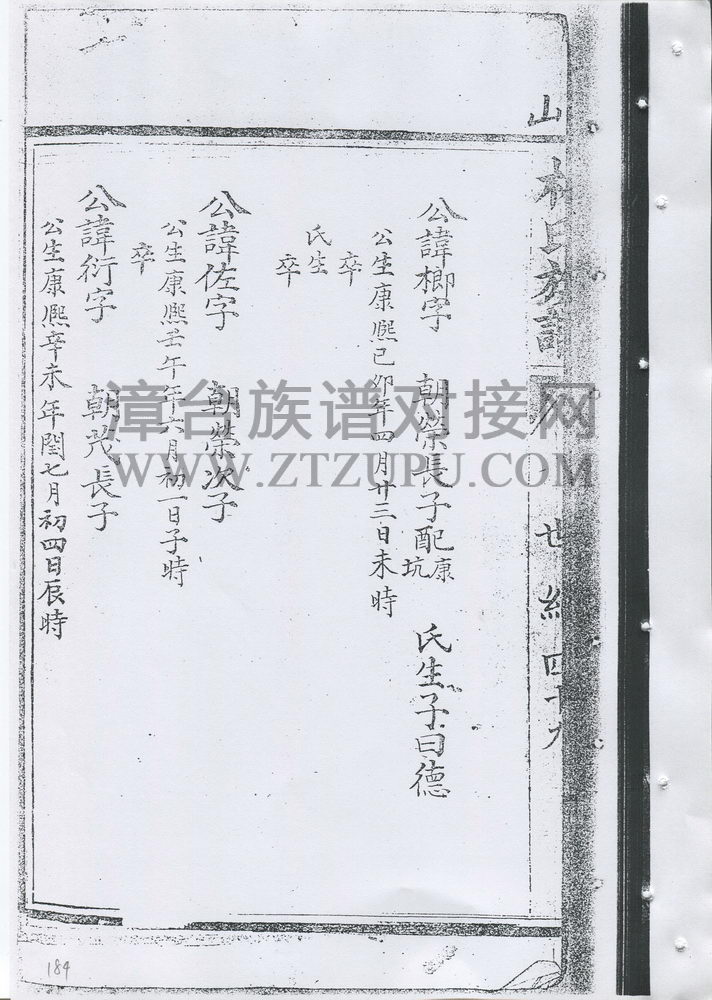 山
林氏族譜
世紀 四十九
公諱楖字 朝榮長子配康坑 氏生子曰德
公生康熙己卯年四月廿三日未時
卒
氏生
卒
公諱佐字 朝榮次子
公生康熙壬午年六月初一日子時
卒
公諱衍字 朝茂長子
公生康熙辛未年閏七月初四日辰時
184
漳台族谱对接网
WWW.ZTZUPU.COM